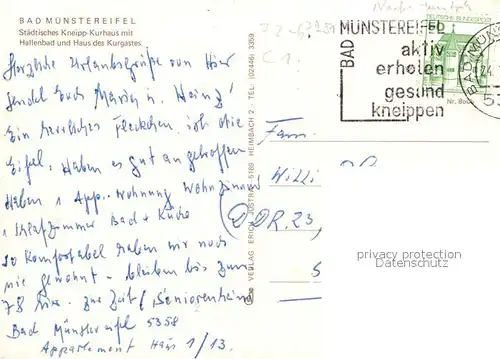 BAD MÜNSTEREIFEL
Städtisches Kneipp-Kurhaus mit
Hallenbad und Haus des Kurgastes
Herzliche Urlaubsgrüße von Hier
sendet Euch Maria u. Heinz!
Ein herrliches Fleckchen, ich die
Eifel. Haben es gut angetroffen
Haben 1 App. wohnung Wohnzimmer
1 Schlafzimmer Bad + Küche
so komfortabel haben wir noch
nie gewohnt - bleiben bis zum
78 zur Zeit (Seniorenheim
Bad Münstereifel 5358
Appartement Haus 1/13.
VERLAG ERICH JUSTRA 5169 HEIMBACH 2 - TEL. (02446) 3359
BAD MÜNSTEREIFEL
aktiv
erholen
gesund
kneippen
DEUTSCHE BUNDESPOST
BAD MÜN
Fam.
Willi
DDR. 23,
S
privacy protection
Datenschutz